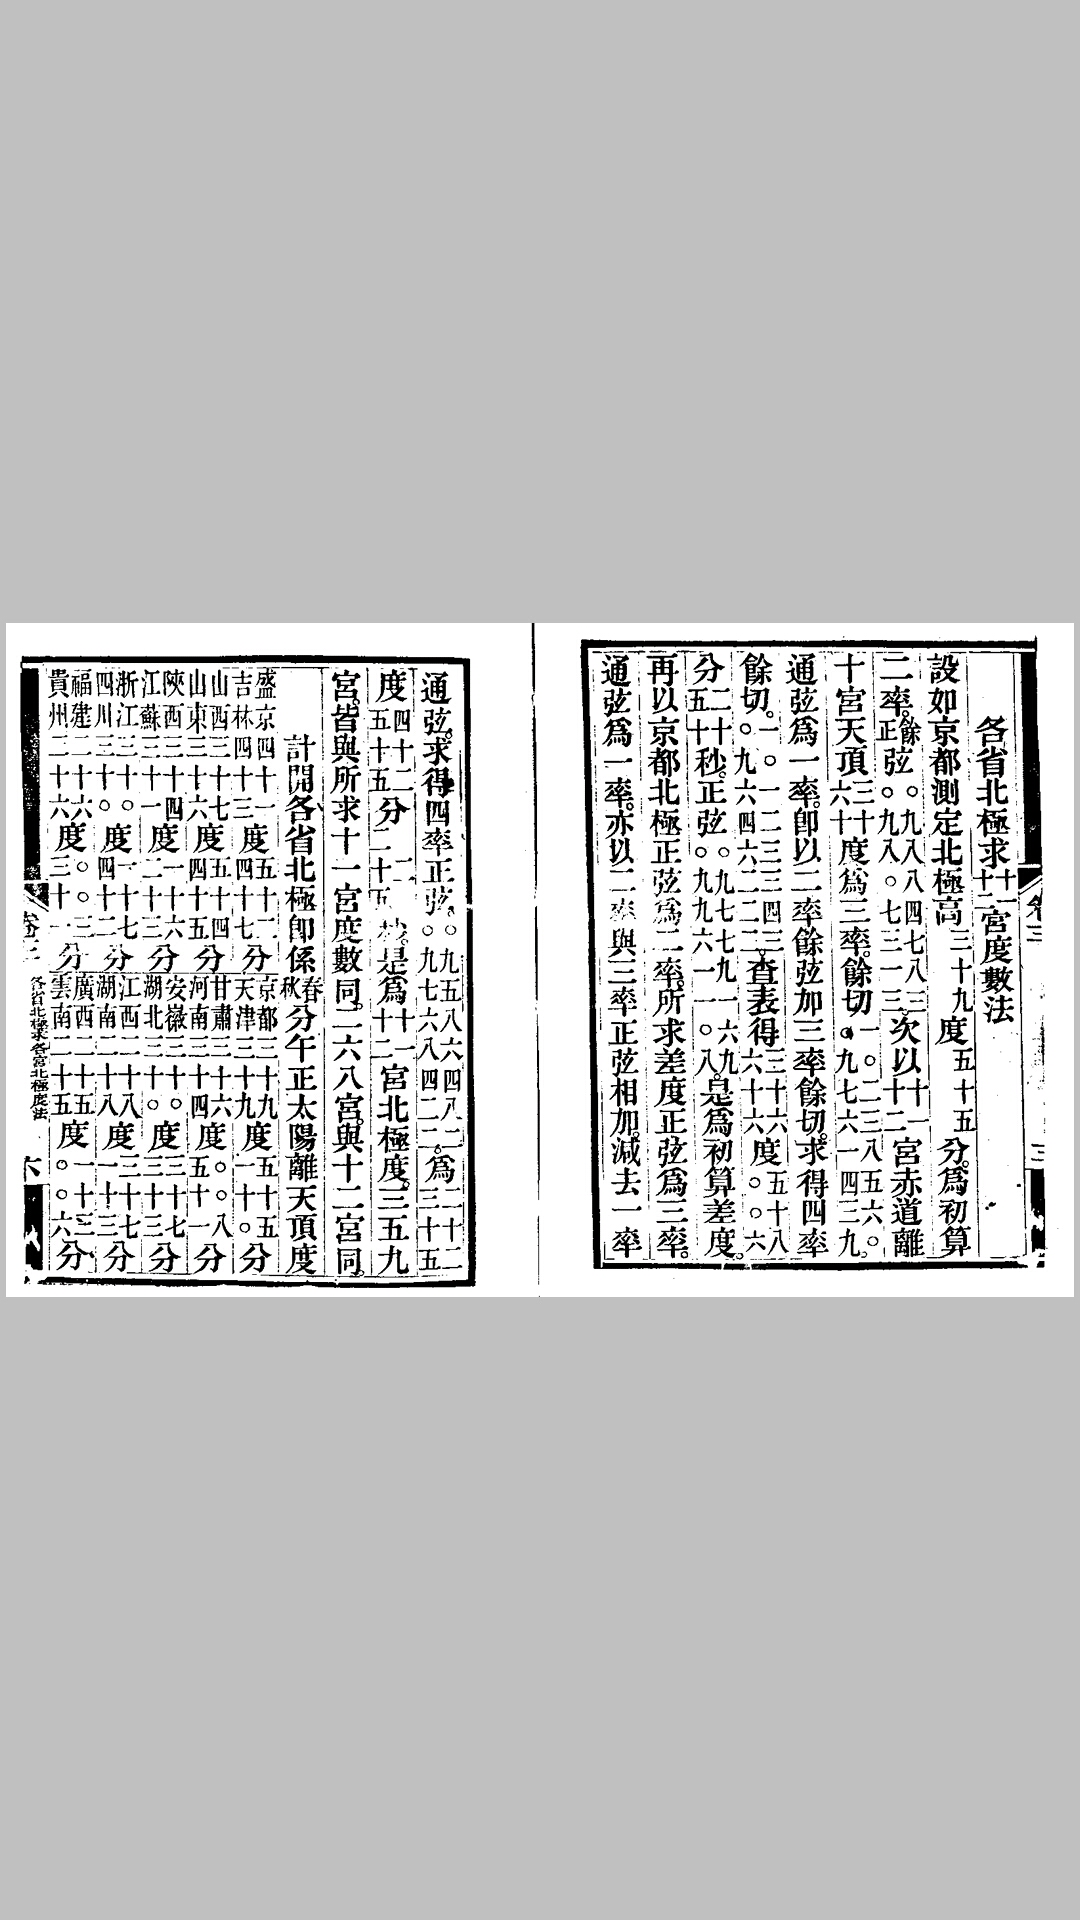 各省北極求十一十二宮度數法
設如京都測定北極高三十九度五十五分。為初算
二率。餘正弦。九八八四七八三。九八。七三一三。次以十一十二宮赤道離
十宮天頂三十六十度為三率。餘切一。二三八五六。。九七六一四三九
通弦為一率。卽以二率餘弦加三率餘切。求得四率
餘切。一。一二三三四三。九六四六二二二查表得三十六六十六度五十八。。六
分二十五十秒。正弦。九七七九一六九。九九六一一。八。是為初算差度。
再以京都北極正弦為二率。所求差度正弦為三率。
通弦為一率。亦以二率與三率正弦相加。減去一率
卷三
三
通弦。求得四率正弦。。九五八六四八二。九七六八四二二。為二十二三十五
度四十二五十五分二十五秒。是為十一十二宮北極度。三五九
宮。皆與所求十一宮度數同。二六八宮。與十二宮同。
計開各省北極卽係春秋分午正太陽離天頂度
盛京四十一度五十二分 京都三十九度五十五分
吉林四十三度四十七分 天津三十九度一十。分
山西三十七度五十四分 甘肅三十六度。。八分
山東三十六度四十五分 河南三十四度五十一分
陝西三十四度一十六分 安徽三十。度三十七分
江蘇三十一度二十三分 湖北三十。度三十三分
浙江三十。度一十七分 江西二十八度三十七分
四川三十。度四十二分 湖南二十八度一十三分
福建二十六度。。三分 廣西二十五度一十三分
貴州二十六度三十一分 雲南二十五度。。六分
卷三
各省北極求各宮北極度法
六